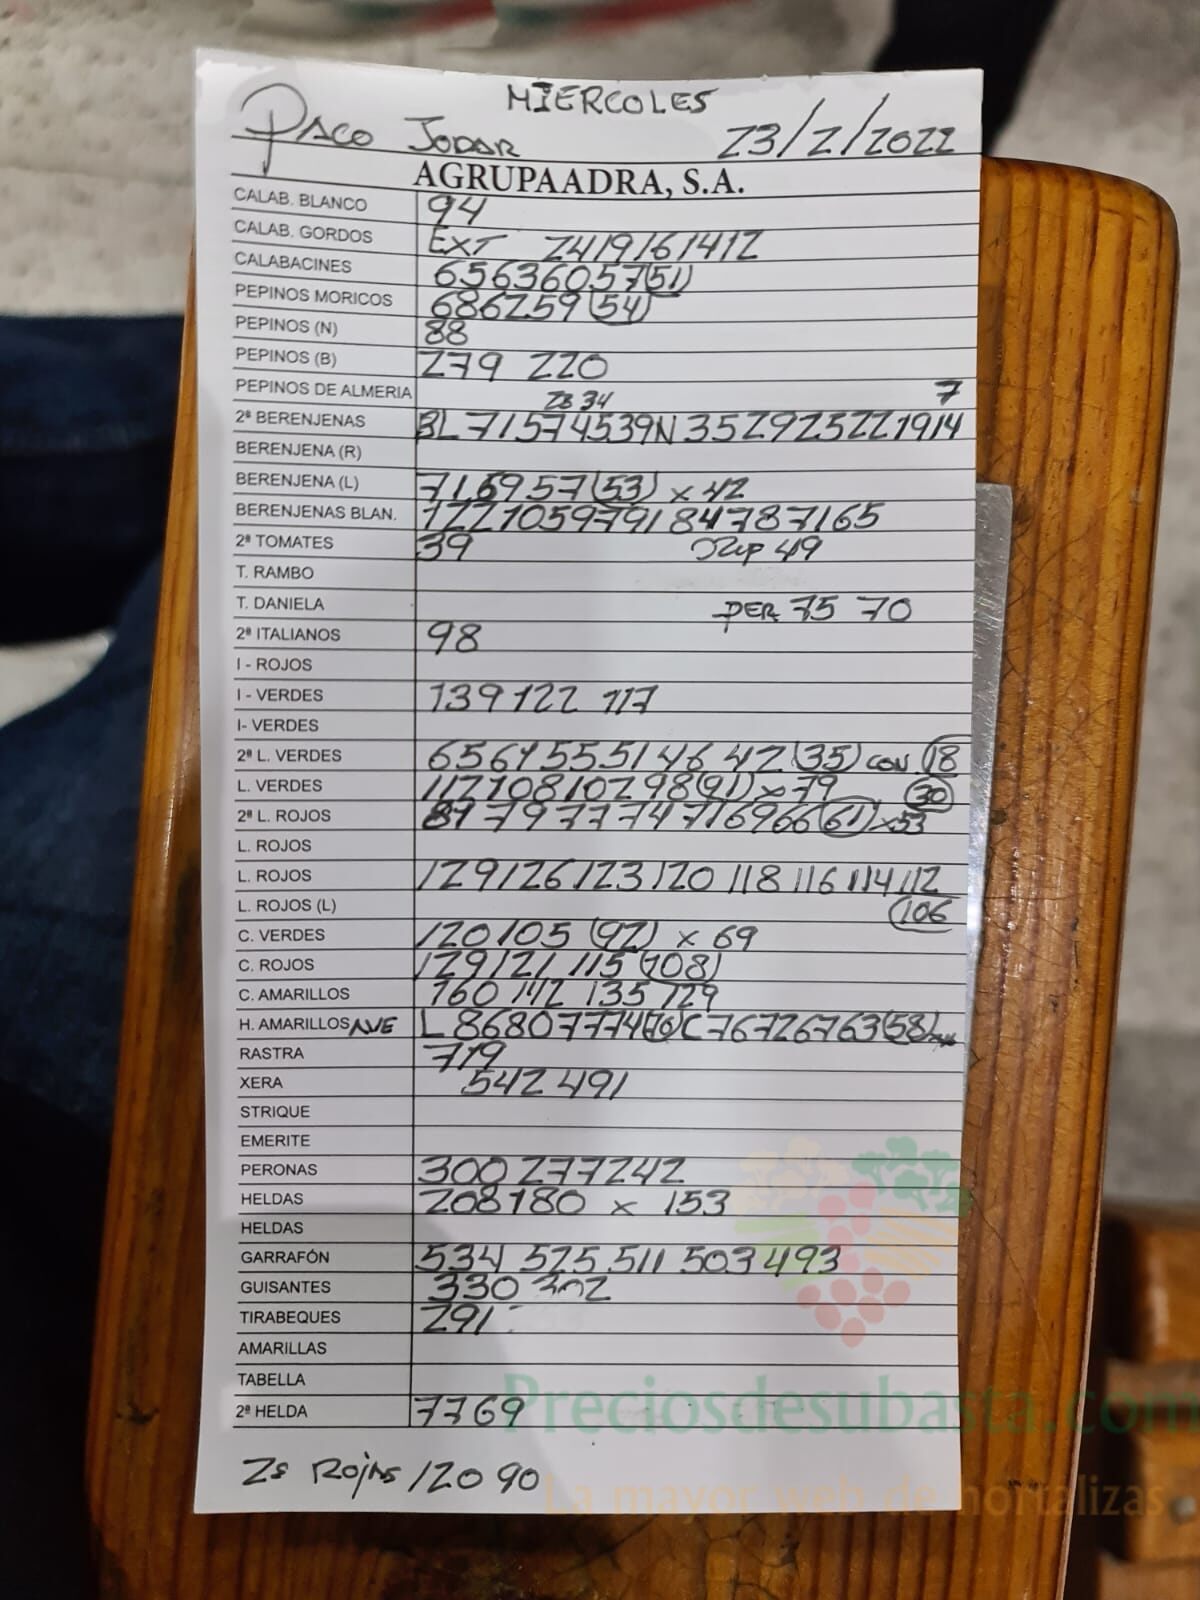 MIERCOLES
PACO JODAR 23/2/2022
AGRUPAADRA, S.A.
CALAB. BLANCO 94
CALAB. GORDOS EXT 24 19 16 14 12
CALABACINES 65 63 60 57 (51)
PEPINOS MORICOS 68 62 59 (54)
PEPINOS (N) 88
PEPINOS (B) 279 220
PEPINOS DE ALMERIA 28 34 7
2ª BERENJENAS BL 71 57 45 39 N 35 29 25 22 19 14
BERENJENA (R)
BERENJENA (L) 71 69 57 (53) x 42
BERENJENAS BLAN. 122 105 97 91 84 78 71 65
2ª TOMATES 39 49
T. RAMBO
T. DANIELA PER 75 70
2ª ITALIANOS 98
I - ROJOS
I - VERDES 139 122 117
I- VERDES
2ª L. VERDES 65 61 55 51 46 42 (35) CON 18
L. VERDES 112 108 102 98 (91) x 79 30
2ª L. ROJOS 89 79 77 74 71 69 66 (61) x 53
L. ROJOS
L. ROJOS 129 126 123 120 118 116 114 112
L. ROJOS (L) (106
C. VERDES 120 105 (92) x 69
C. ROJOS 129 121 115 (108)
C. AMARILLOS 160 142 135 129
H. AMARILLOS AVE L 86 80 77 74 (70) C 76 72 67 63 (58)
RASTRA 719
XERA 542 491
STRIQUE
EMERITE
PERONAS 300 277 242
HELDAS 208 180 x 153
HELDAS
GARRAFÓN 534 525 511 503 493
GUISANTES 330 302
TIRABEQUES 291
AMARILLAS
TABELLA
2ª HELDA 77 69
2S ROJAS 120 90
Preciosdesubasta.com
La mayor web de hortalizas